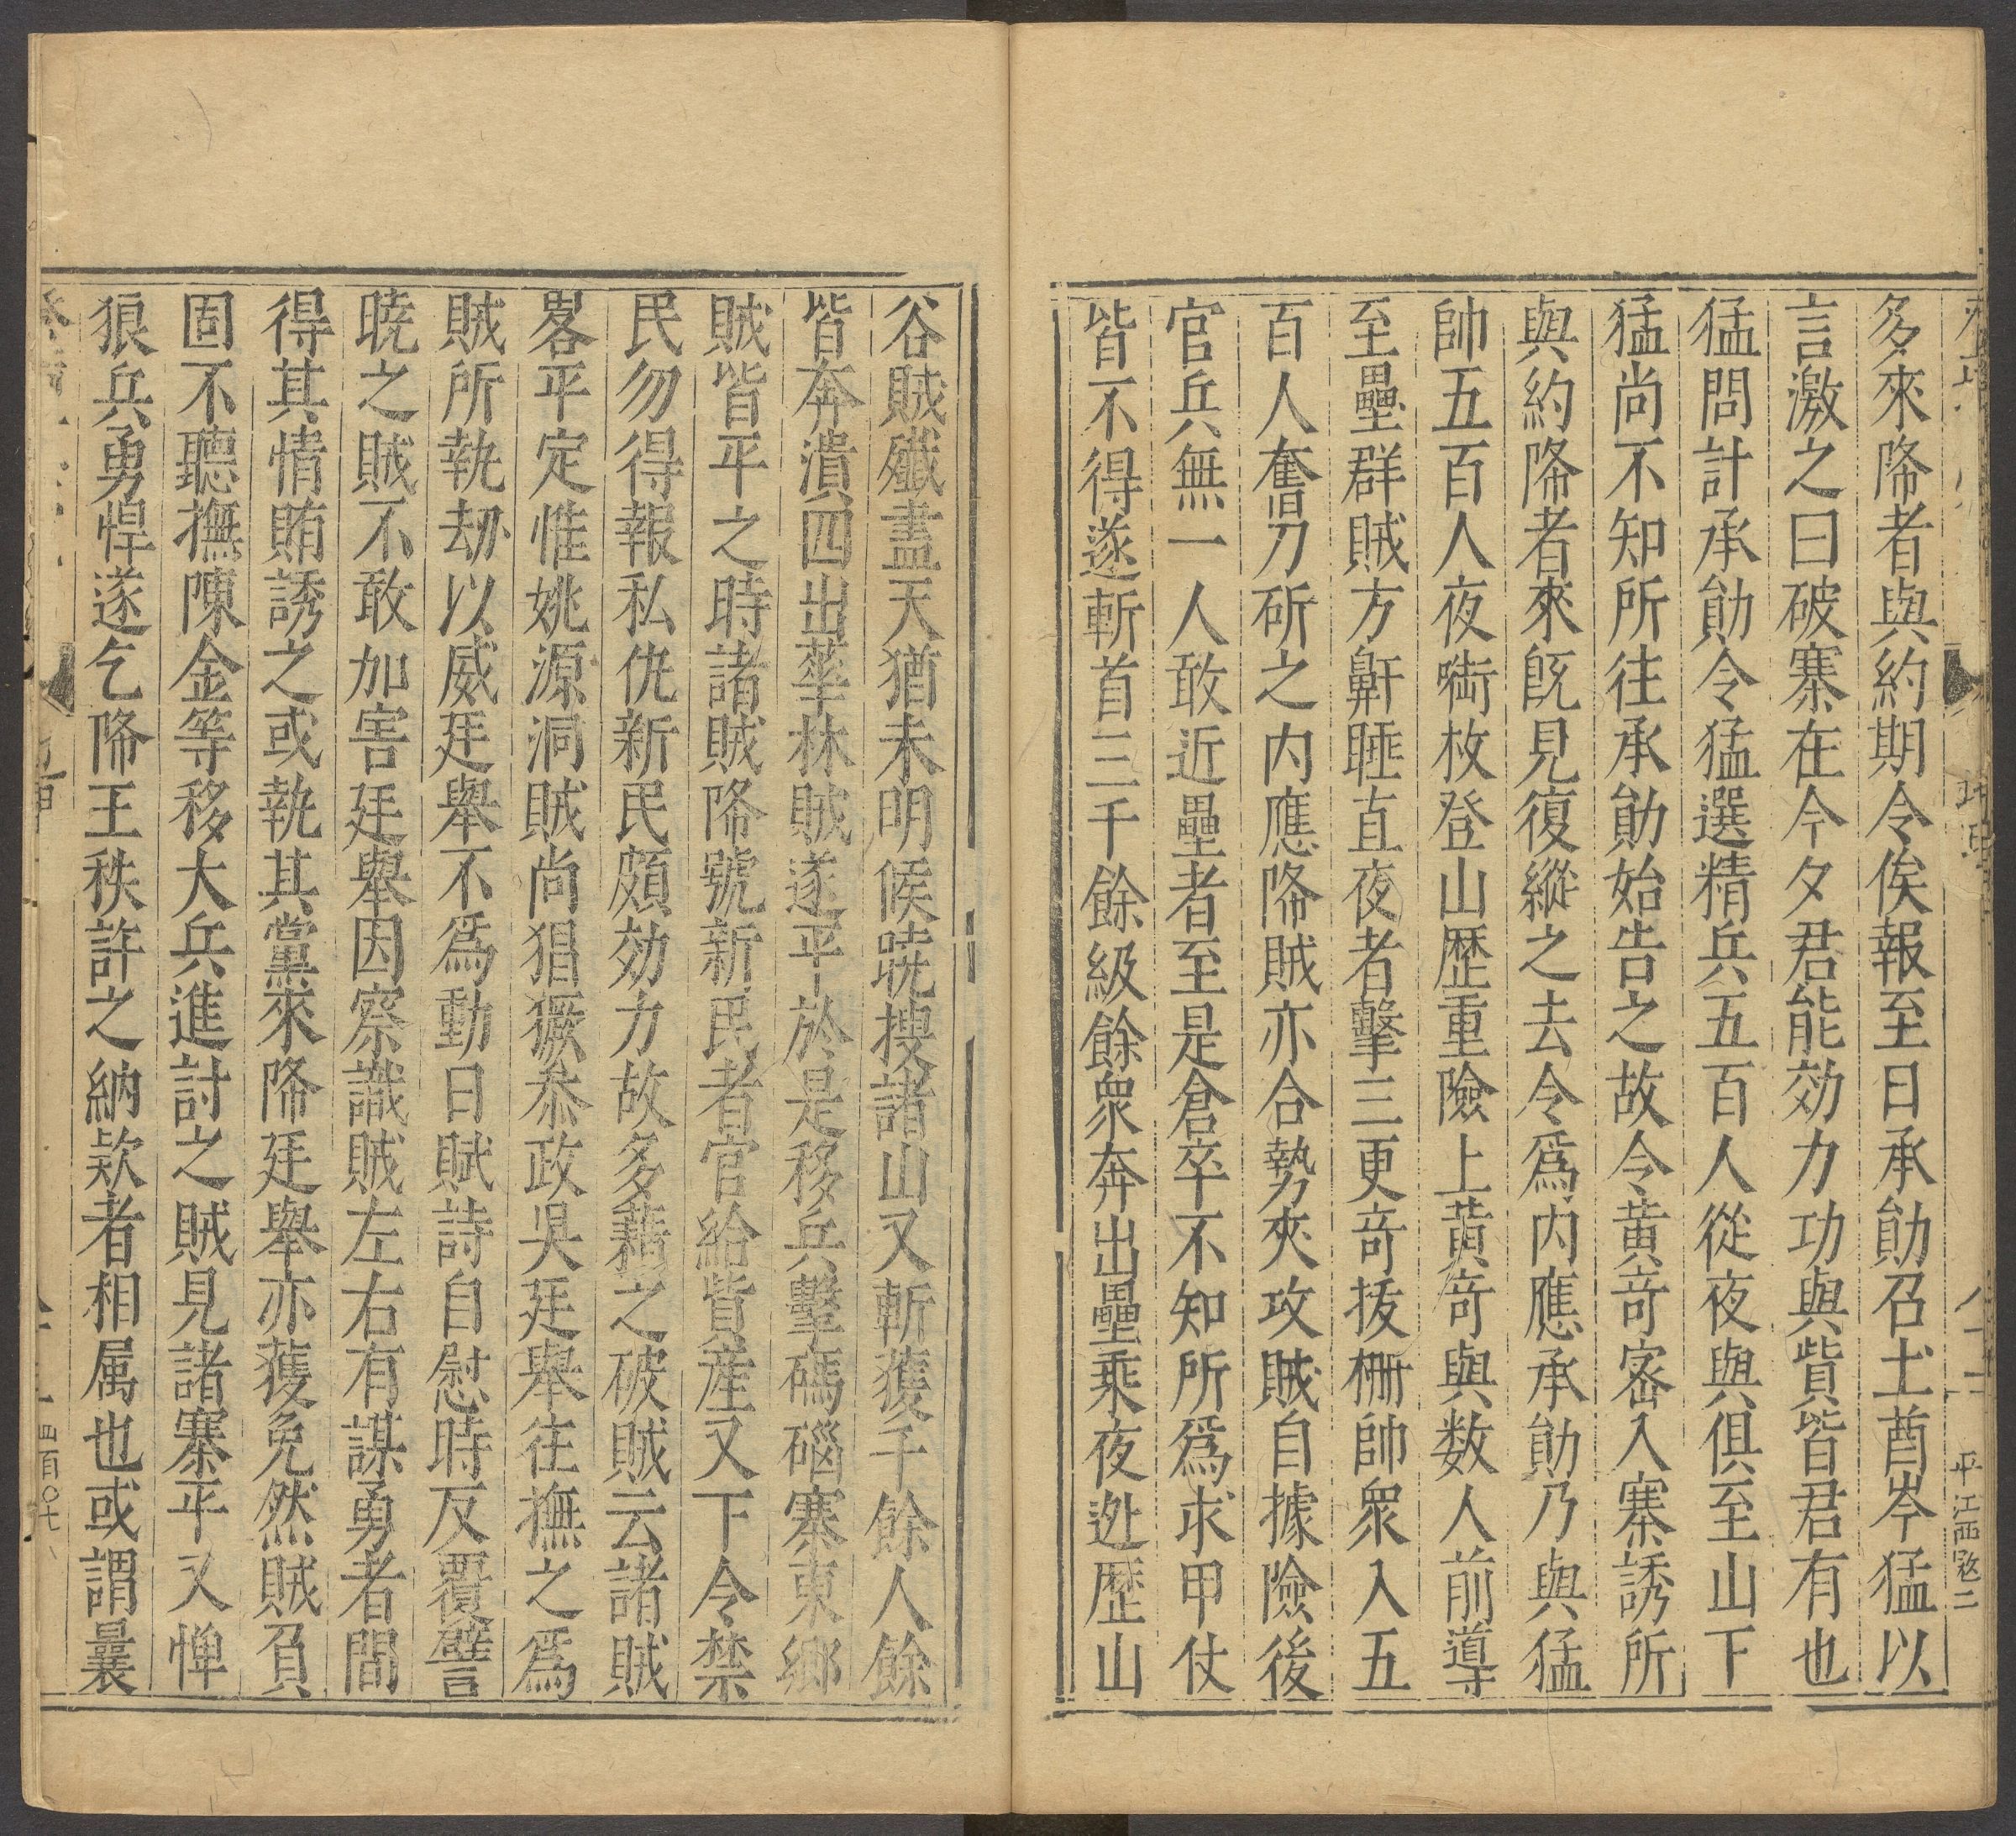 多來降者與約期令俟報至日承勛召土酋岑猛以
言激之曰破寨在今夕君能効力功與貲皆君有也
猛問計承勛令猛選精兵五百人從夜與俱至山下
猛尚不知所往承勛始告之故令黄竒密入寨誘所
與約降者來旣見復縱之去令爲内應承勛乃與猛
帥五百人夜啣枚登山歷重險上黄竒與数人前導
至壘群賊方鼾睡直夜者擊三更竒拔柵帥衆入五
百人奮刀斫之内應降賊亦合勢夾攻賊自據險後
官兵無一人敢近壘者至是倉卒不知所爲求甲仗
皆不得遂斬首三千餘級餘衆奔出壘乘夜迯歷山
谷賊殲盡天猶未明候曉搜諸山又斬獲千餘人餘
皆奔潰四出華林賊遂平於是移兵擊碼碯寨東鄉
賊皆平之時諸賊降號新民者官給貲產又下令禁
民勿得報私仇新民頗効力故多藉之破賊云諸賊
畧平定惟姚源洞賊尚猖獗叅政吳廷舉往撫之爲
賊所執刼以威廷舉不爲動日賦詩自慰時反覆譬
曉之賊不敢加害廷舉因察識賊左右有謀勇者間
得其情賄誘之或執其黨來降廷舉亦獲免然賊負
固不聽撫陳金等移大兵進討之賊見諸寨平又憚
狼兵勇悍遂乞降王秩許之納欵者相属也或謂曩
平江西寇二
四百〇七